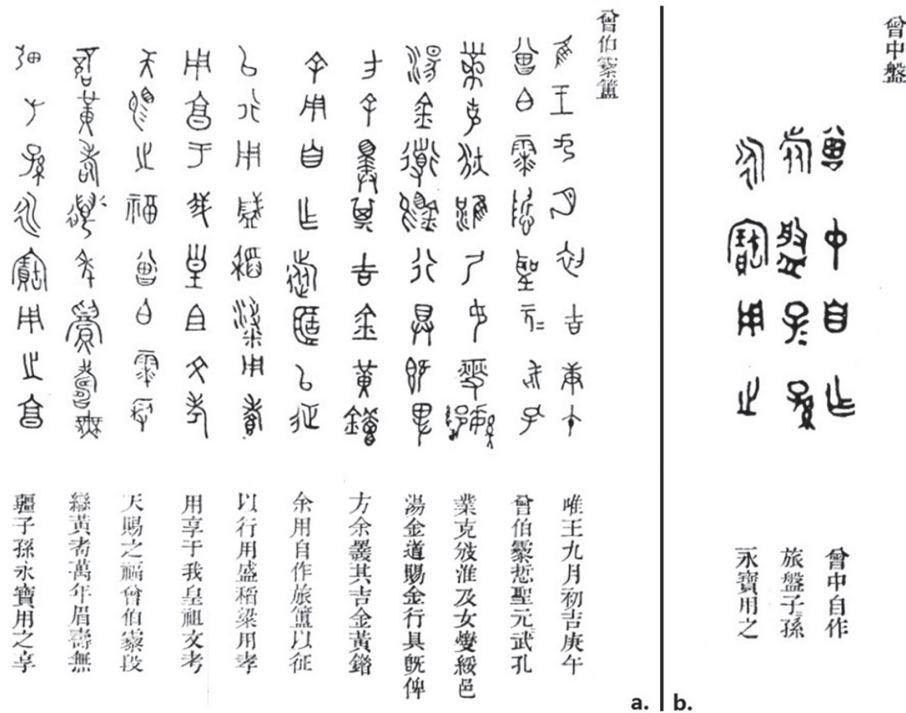 曾伯霥簠
唯王九月初吉庚午
曾伯霥悊聖元武孔
業克淮及女燮綏邑
湯金道賜金行具既俾
方余其吉金黃
余用自作旅簠以征
以行用盛稻粱用孝
用享于我皇祖文考
天賜之福曾伯霥叚
黃耇萬年眉壽無
疆子孫永寶用之享
a.
曾中盤
曾中自作
旅盤子孫
永寶用之
b.